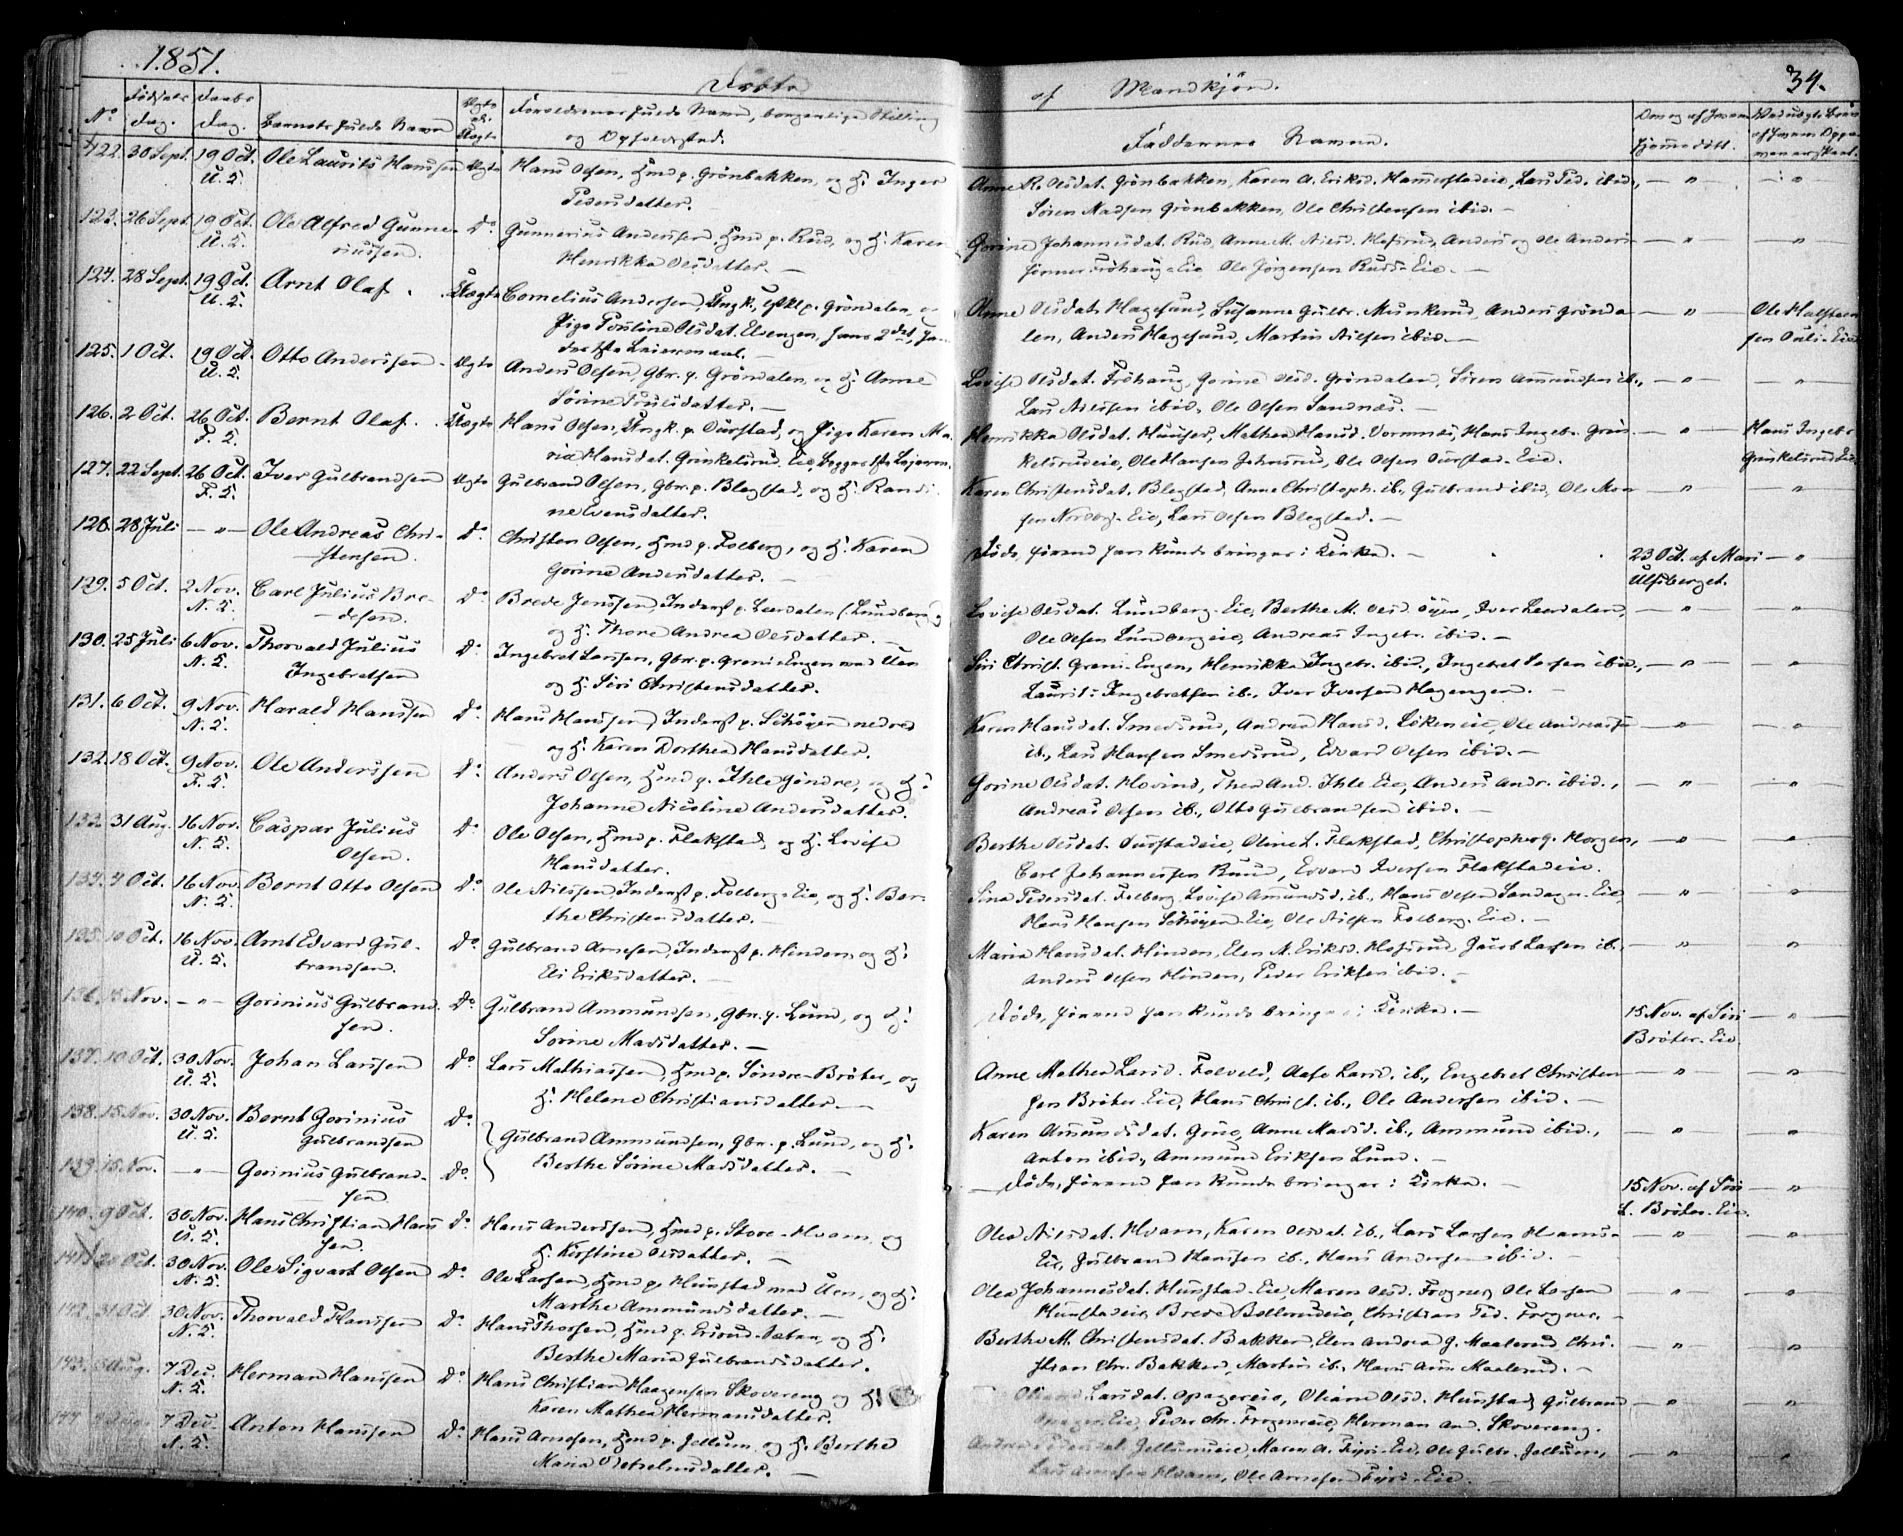 1851.
Døbte
af Mandkjøn.
34.
No
Fødsels Dag.
Daabs Dag.
Barnets fulde Navn
Ægte el. Uægte
Forældrenes fulde Navn, borgerlige Stilling
og Opholdssted.
Faddernes Navne.
122. 30 Sept. 19 Oct. Ole Laurits Hanssen Ægte Hans Olsen, Hmd p. Grönbakken, og H. Inger
U. S. Pedersdatter.
Anne R. Olsdat. Grönbakken, Karen A. Eriksd. Hammerstadeie, Lars Ped. ibid.,
Sören Madsen Grönbakken, Ole Christensen ibid. —
123. 26 Sept. 19 Oct. Ole Alfred Gunne- Do Gunnerius Anderssen, Hmd p. Rud, og H. Karen
U. S. riussen. Henrikka Olsdatter. —
Gorine Johannesdat. Rud, Anne M. Nilsd. Hofsrud, Anders og Ole Anders
sönner Fröhaug-Eie, Ole Jörgensen Ruds-Eie. —
124. 28 Sept. 19 Oct. Arnt Olaf. Uægte Cornelius Andersen, Ungk., p. Gröndalen, og
U. S. Pige Torsline Olsdat. Elvengen,
Anne Olsdat. Hagesund, Susanne Gulbr. Munkerud, Anders Grönda-
len, Anders Hagesund, Martin Nilsen ibid. —
Ole Halsteen
sen Ouli-Eie
125. 1 Oct. 19 Oct. Otto Anderssen. Ægte Anders Olsen, Gbr. p. Gröndalen, og H. Anne
U. S. Sörine Trulsdatter. —
Lovise Olsdat. Fröhaug, Gorine Olsd. Gröndalen, Sören Ammundsen ib.,
Lars Nilssen ibid., Ole Olsen Sandnes. —
126. 2 Oct. 26 Oct. Bernt Olaf. Uægte Hans Olsen, Ungk. p. Ourstad, og Pige Karen Ma-
F. S. rie Hansdat. Grinkelsrud Eie, begges 1ste Leierm.
Henrikka Olsdat. Huuser, Mathea Hansd. Vormnes, Hans Ingebr. Grin-
kelsrudeie, Ole Hansen Johnsrud, Ole Olsen Ourstad-Eie.
Hans Ingebr.
Grinkelsrud Eie
127. 22 Sept. 26 Oct. Iver Gulbrandsen Ægte Gulbrand Olsen, Gbr. p. Blegstad, og H. Randi-
F. S. ne Evensdatter.
Karen Christensdat. Blegstad, Anne Christoph. ib., Gulbrand ibid., Ole Mon-
sen Norberg-Eie, Lars Olsen Blegstad. —
128. 28 Juli — " — Ole Andreas Chri- Do Christen Olsen, Hmd p. Folberg, og H. Karen
stensen. Gorine Andersdatter. —
Döde, forend han kunde bringes i Kirke. —
23 Oct. af Mari
Ulfsberget.
129. 5 Oct. 2 Nov. Carl Julius Bre- Do Brede Jenssen, Inderst p. Leerdalen (Lundberg)
N. S. desen. og H. Thore Andrea Olsdatter. —
Lovise Olsdat. Lundberg-Eie, Berthe M. Olsd. Öyen, Iver Leerdalen,
Ole Olsen Lundbergeie, Andreas Ingebr. ibid. —
130. 25 Juli 6 Nov. Thorvald Julius Do Ingebret Larssen, Gbr. p. Greni-Engen med Uen
N. S. Ingebretsen og H. Siri Christensdatter.
Siri Christ. Greni-Engen, Henrikka Ingebr. ibid., Ingebret Larsen ibid.,
Laurits Ingebretsen ib., Iver Iversen Hagengen. —
131. 6 Oct. 9 Nov. Harald Hanssen Do Hans Hanssen, Inderst p. Schöyen nedre
N. S. og H. Karen Dorthea Hansdatter.
Karen Hansdat. Smedsrud, Andrea Hansd. Lökeneie, Ole Andreasse
ib., Lars Hansen Smedsrud, Edvard Olsen ibid. —
132. 18 Oct. 9 Nov. Ole Anderssen Do Anders Olsen, Hmd p. Ihle Söndre, og H.
F. S. Johanne Nicoline Andersdatter.
Gorine Olsdat. Hovind, Thea And. Ihle Eie, Anders Andr. ibid.,
Andreas Olsen ib., Otto Gulbrandsen ibid. —
133. 31 Aug. 16 Nov. Caspar Julius Do Ole Olsen, Hmd p. Flakstad, og H. Lovise
N. S. Olsen. Hansdatter.
Berthe Olsdat. Ourstadeie, Oline L. Flakstad, Christopher G. Horgen,
Carl Johannessen Ruud, Edvard Iversen Flakstadeie.
134. 4 Oct. 16 Nov. Bernt Otto Olsen Do Ole Nilssen, Inderst p. Folberg-Eie, og H. Ber-
N. S. the Christensdatter. —
Sina Pedersdat. Folberg, Lovise Amundsd. ib., Hans Olsen Sandagn-Eie,
Hans Hansen Schöyen-Eie, Ole Nilsen Folberg-Eie. —
135. 10 Oct. 16 Nov. Arnt Edvard Gul- Do Gulbrand Arnesen, Inderst p. Hinden, og H.
U. S. brandsen. Eli Eriksdatter. —
Maria Hansdat. Hinden, Elen M. Eriksd. Hofsrud, Jacob Larsen ib.,
Anders Olsen Hinden, Peder Eriksen ibid. —
136. 15 Nov. — " — Gorinius Gulbrand- Do Gulbrand Ammundsen, Gbr. p. Lund, og H.
sen. Sörine Madsdatter. —
Döde, forend han kunde bringes i Kirke. —
15 Nov. af Siri
Bröter-Eie
137. 10 Oct. 30 Nov. Johan Larssen Do Lars Mathiassen, Hmd p. Söndre-Bröter, og
U. S. H. Helene Christiansdatter. —
Anne Mathea Larsd. Folveld, Olafe Larsd. ib., Engebret Christen-
sen Bröter-Eie, Hans Christ. ib., Ole Andersen ibid. —
138. 15 Nov. 30 Nov. Bernt Gorinius Do
U. S. Gulbrandsen
Gulbrand Ammundsen, Gbr. p. Lund, og H.
Berthe Sörine Madsdatter. —
Karen Amundsdat. Grue, Anne Madsd. ib., Ammund ibid.,
Anton ibid., Ammund Eriksen Lund. —
139. 15 Nov. — " — Gorinius Gulbrand- Do
sen
Döde, forend han kunde bringes i Kirke. —
15 Nov. af Siri
Bröter-Eie.
140. 9 Oct. 30 Nov. Hans Christian Hans- Do Hans Anderssen, Hmd p. Store-Hvam, og
U. S. sen. H. Kirstine Olsdatter. —
Olea Nilsdat. Hvam, Karen Olsdat. ib., Lars Larsen Hvams-
Eie, Gulbrand Hanssen ib., Hans Andersen ibid. —
141. 20 Oct. 30 Nov. Ole Sigvart Olsen Do Ole Larsen, Hmd p. Hunstad med Uen, og H.
N. S. Marthe Ammundsdatter. —
Olea Johannesdat. Hunstad-Eie, Maren Olsd. Frogner, Ole Larsen
Hunstadeie, Brede Bollerudeie, Christian Ped. Frogner. —
142. 31 Oct. 30 Nov. Thorvald Hanssen Do Hans Thorsen, Hmd p. og H.
N. S. Berthe Maria Gulbrandsdatter.
Berthe M. Christensdat. Bakken, Elen Andrea G. Maalerud, Chri-
stian Chr. Bakken, Martin ib., Hans Maalerud. —
143. Aug. 7 Dec. Herman Hanssen Do Hans Christian Haagensen Skovereng og H.
N. S. Karen Mathea Hermansdatter.
Larsdat. Opagereie, Oliane Olsd. Hunstad, Gulbrand
Eie, Peder Chr. Frognereie, Herman And. Skovereng.
144. 7 Dec. Anton Hanssen Do Hans Arnesen, Hmd p. Jellum, og H. Berthe
N. S. Maria datter. —
Jellumeie, Maren A. Fyri-Eie, Ole Gulbr. Jellum,
Hvam, Ole Arnesen Fyri-Eie. —